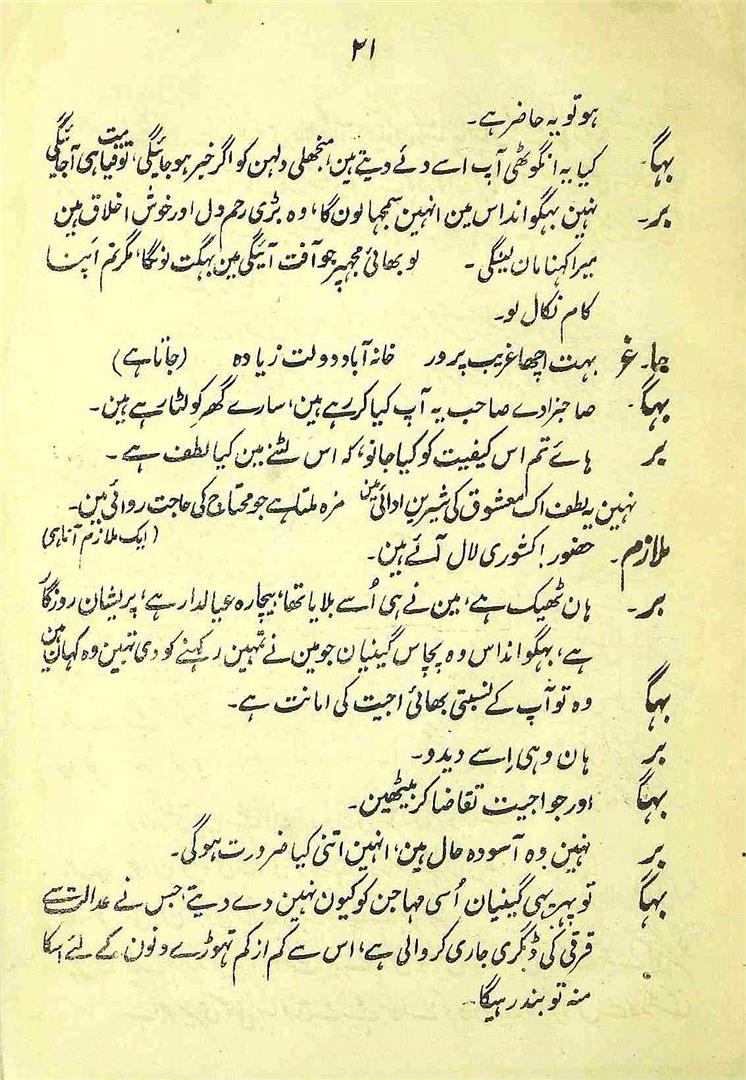 ۲۱
ہو تو یہ حاضر ہے۔
بھگا۔ کیا یہ انگوٹھی آپ اسے دئے دیتے ہین، منجھلی دلہن کو اگر خبر ہو جائیگی، تو قیامت ہی آجائیگی
بر۔ نہین بہگوانداس مین انہین سمجہا لون گا، وہ بڑی رحم دل اور خوش اخلاق ہین
میرا کہنا مان لینگی۔ لو بھائی مجہپر جو آفت آئیگی مین بہگت لونگا، مگر تم اپنا
کام نکال لو۔
جا۔غ بہت اچھا غریب پرور خانہ آباد دولت زیادہ (جاتا ہے)
بہگا۔ صاحبزادے صاحب یہ آپ کیا کر رہے ہین، سارے گھر کو لٹا رہے ہین۔
بر ہائے تم اس کیفیت کو کیا جانو، کہ اس لٹنے مین کیا لطف ہے۔
نہین یہ لطف اک معشوق کی شیرین ادائی مین مزہ ملتا ہے جو محتاج کی حاجت روائی مین۔
(ایک ملازم آتا ہی)
ملازم۔ حضور! کشوری لال آئے ہین۔
بر۔ ہان ٹھیک ہے، مین نے ہی اُسے بلایا تھا، بیچارہ عیالدار ہے، پریشان روزگار
ہے، بہگوانداس وہ پچاس گینیان جو مین نے تمہین رکہنے کو دی تہین وہ کہان ہین
بہگا وہ تو آپ کے نسبتی بھائی اجیت کی امانت ہے۔
بر ہان وہی اِسے دیدو۔
بہگا اور جو اجیت تقاضا کر بیٹھین۔
بر نہین وہ آسودہ حال ہین، انہین اتنی کیا ضرورت ہوگی۔
بہگا تو پہر یہی گینیان اُسی مہاجن کو کیون نہین دے دیتے، جس نے عدالت سے
قرقی کی ڈگری جاری کروالی ہے، اس سے کم از کم تہوڑے دنون کے لئے اسکا
منہ تو بند رہیگا۔